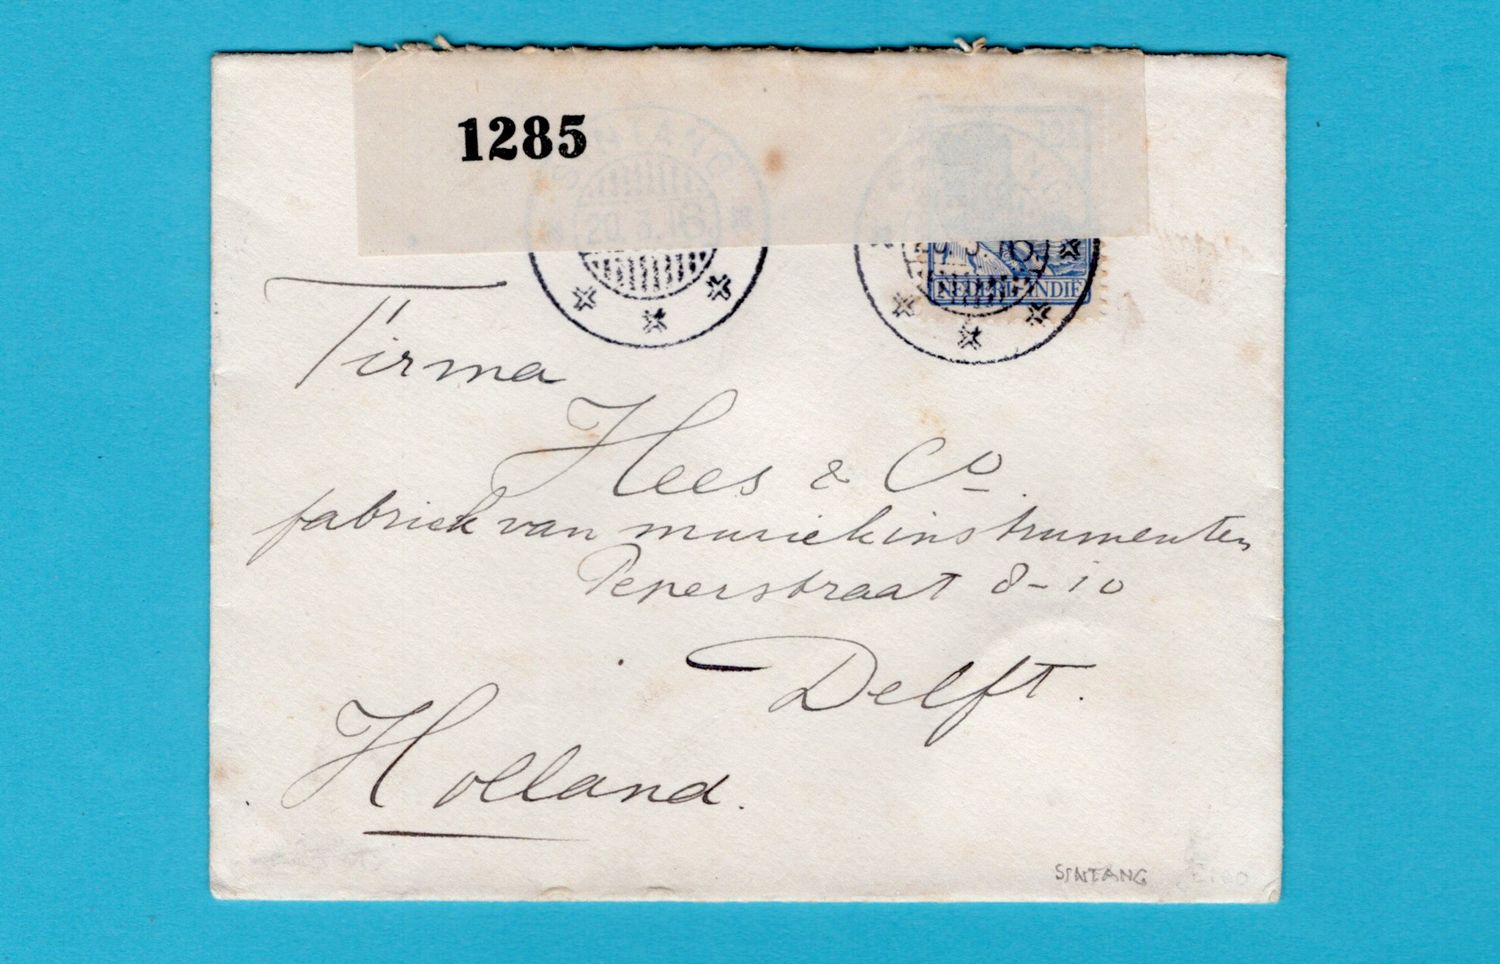 1285
SINTANG
20.3.16
12½
20.3.16
NEDERL-INDIË
Firma
Hees & Co
fabriek van muziekinstrumenten
Peperstraat 8-10
Delft.
Holland.
SINTANG